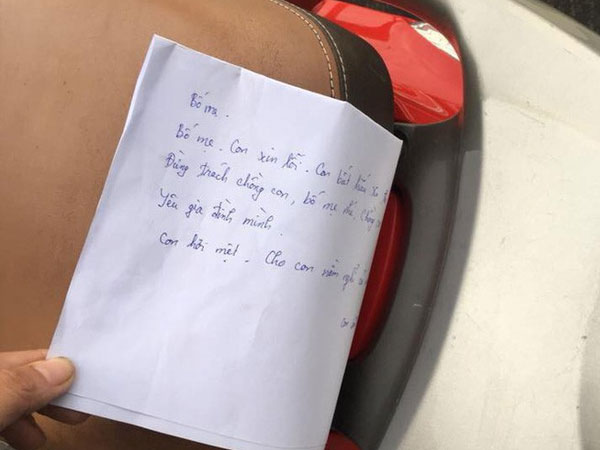 Bố mẹ.
Bố mẹ. Con xin lỗi. Con bất hiếu xin
Đừng trách chồng con, bố mẹ nhé. Chồng
Yêu gia đình mình.
Con hơi mệt. Cho con nằm nghỉ